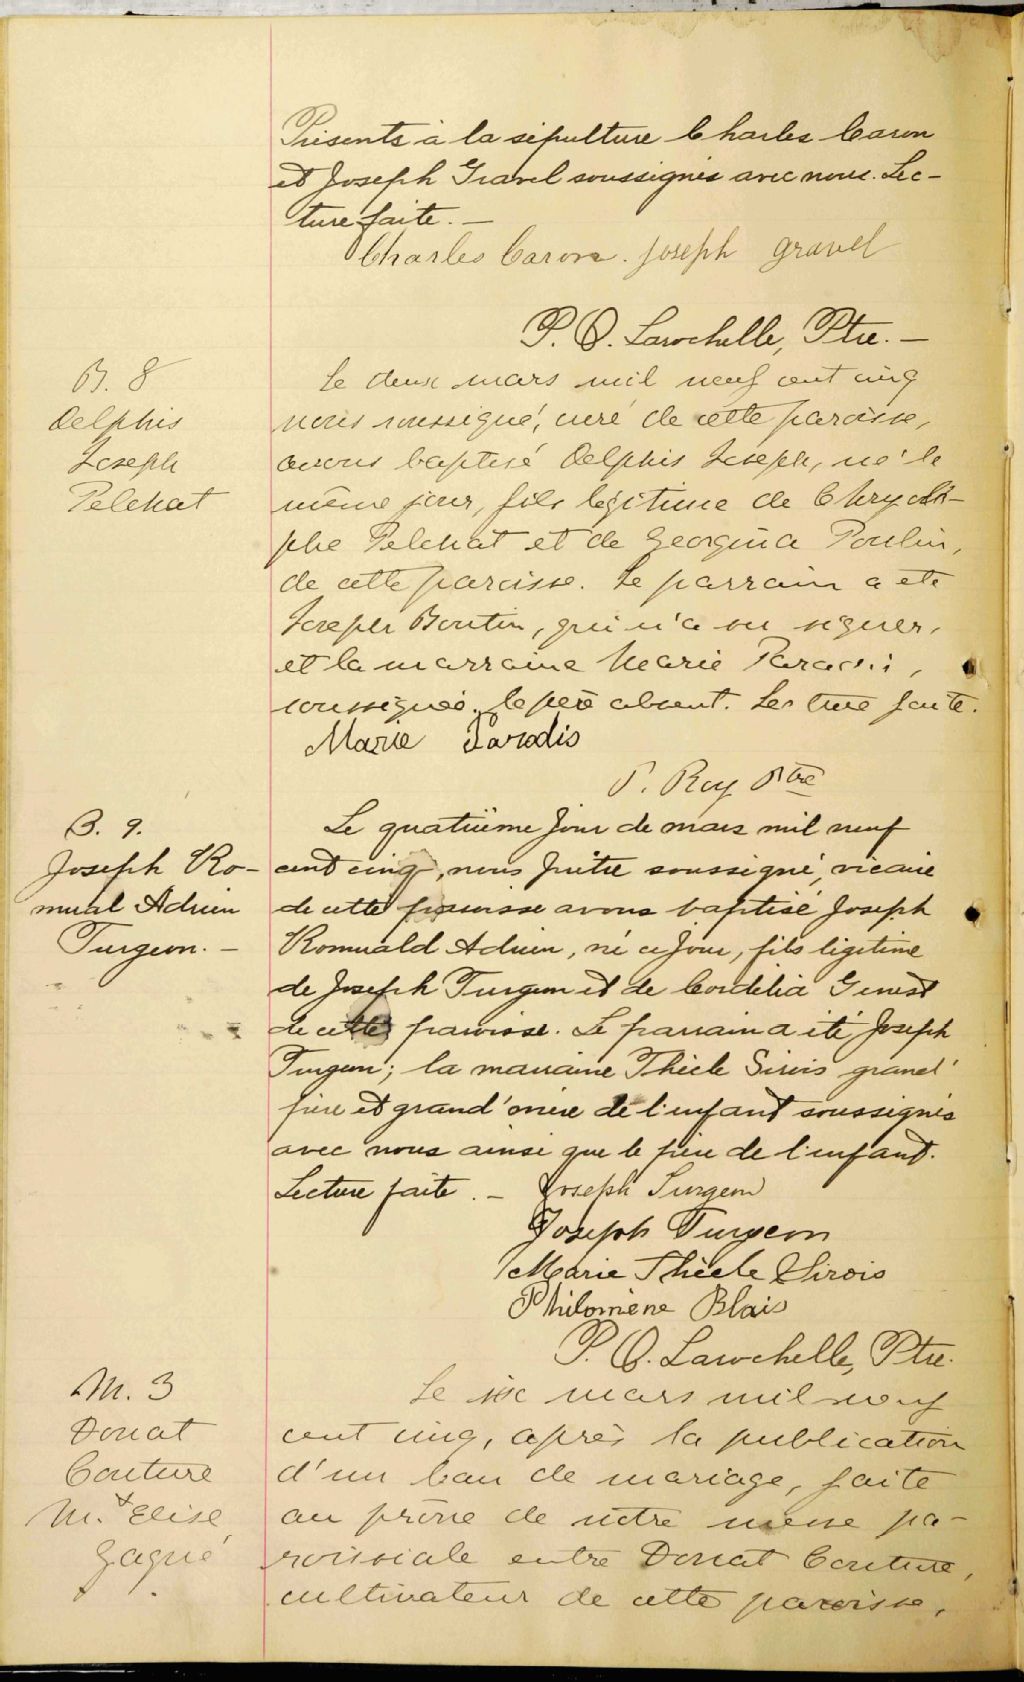 Présents à la sépulture Charles Caron
et Joseph Gravel soussignés avec nous. Lec-
ture faite. —
Charles Caron. Joseph gravel
P. O. Larochelle, Ptre. —
B. 8
Delphis
Joseph
Pelchat
Le deux mars mil neuf cent cinq
nous soussigné, curé de cette paroisse,
avons baptisé Delphis Joseph, né le
même jour, fils légitime de Chryolo-
phe Pelchat et de Georgina Poulin,
de cette paroisse. Le parrain a ete
Joseph Boutin, qui n'a su signer,
et la marraine Marie Paradis,
soussignée. le père absent. Lecture faite.
Marie Paradis
P. Roy Ptre
B. 9.
Joseph Ro-
muald Adrien
Turgeon. —
Le quatrième jour de mars mil neuf
cent cinq, nous prêtre soussigné, vicaire
de cette paroisse avons baptisé Joseph
Romuald Adrien, né ce jour, fils légitime
de Joseph Turgeon et de Cordélia Genest
de cette paroisse. Le parrain a été Joseph
Turgeon; la marraine Thècle Sirois grand'
père et grand'mère de l'enfant soussignés
avec nous ainsi que le père de l'enfant.
Lecture faite. — Joseph Turgeon
Joseph Turgeon
Marie Thècle Sirois
Philomène Blais
P. O. Larochelle, Ptre.
M. 3
Donat
Couture
+
M. Elise
Gagné
Le six mars mil neuf
cent cinq, après la publication
d'un ban de mariage, faite
au prône de notre messe pa-
roissiale entre Donat Couture,
cultivateur de cette paroisse,